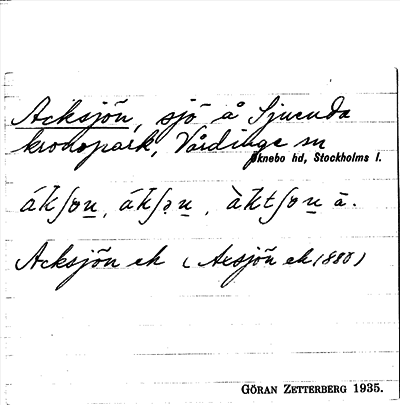 Acksjön, sjö å Sjuenda
kronopark, Vårdinge sn
Öknebo hd, Stockholms l.
ákʃɷn̲, ákʃən̲, àktʃɷn̲ ā.
Acksjön ek (Axsjön ek 1880)
GÖRAN ZETTERBERG 1935.